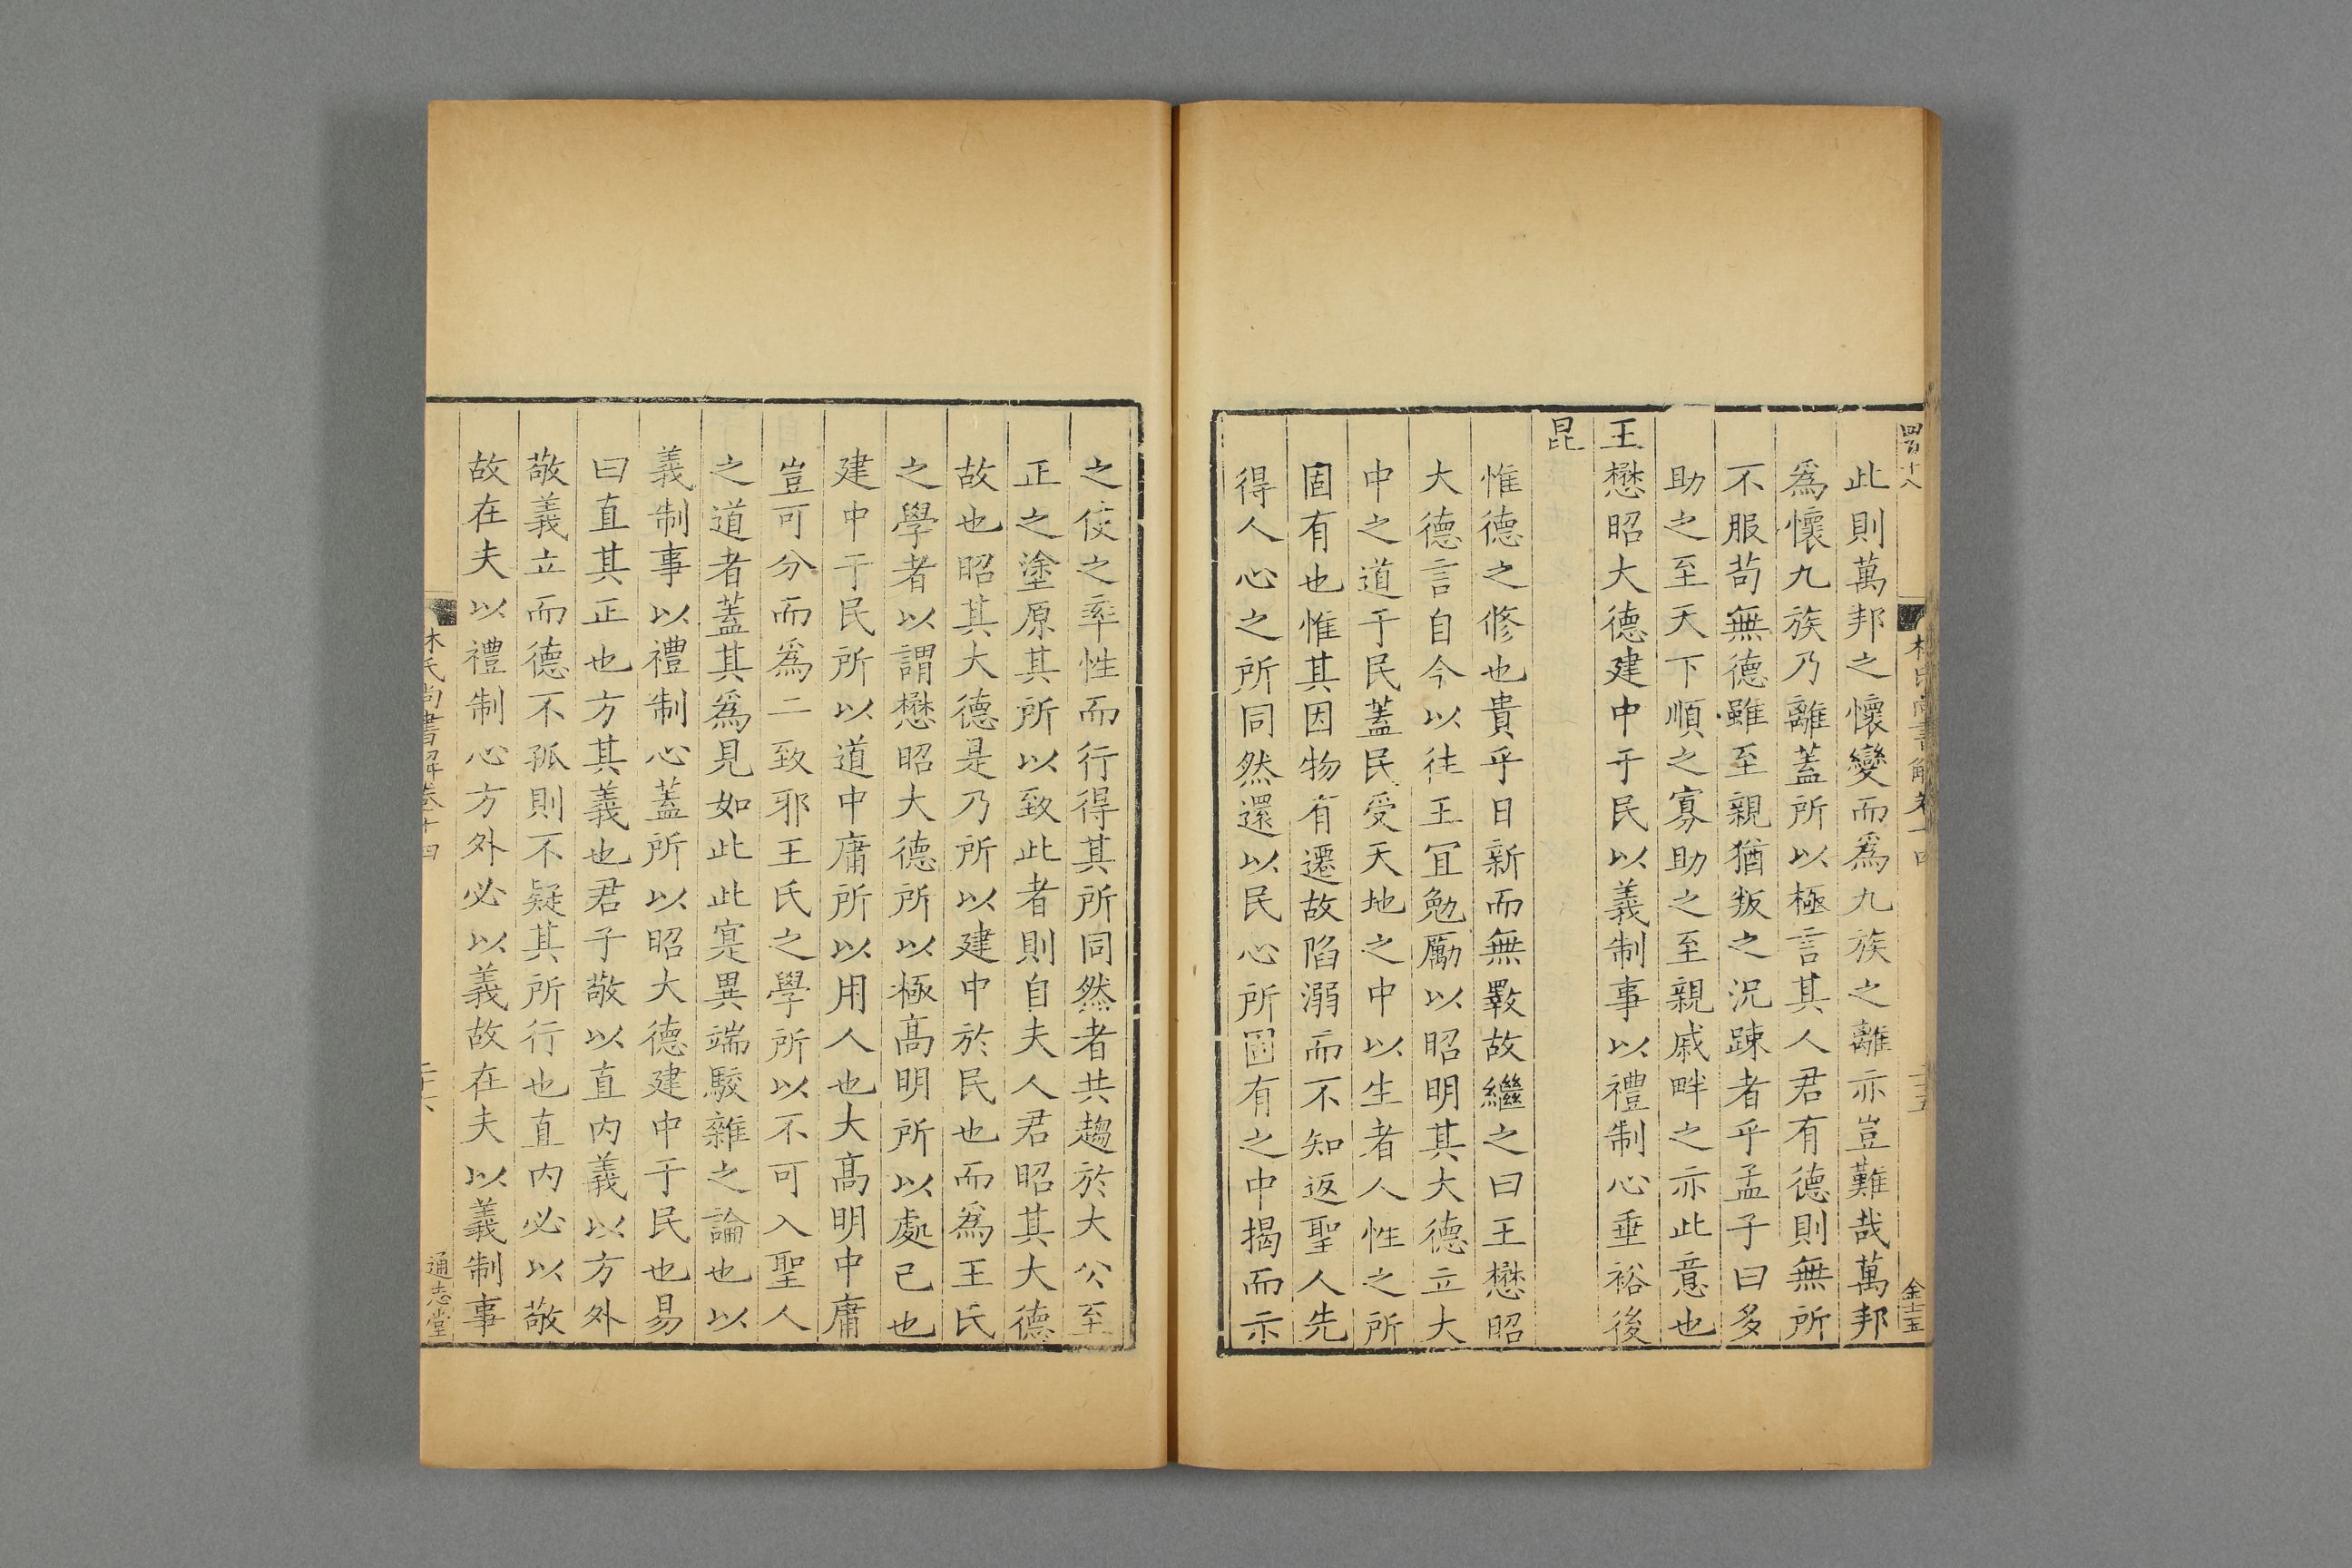 四百十八
林氏尚書解卷十四
二十五
金士玉
此則萬邦之懷變而爲九族之離亦豈難哉萬邦
爲懷九族乃離蓋所以極言其人君有德則無所
不服苟無德雖至親猶叛之況踈者乎孟子曰多
助之至天下順之寡助之至親戚畔之亦此意也
王懋昭大德建中于民以義制事以禮制心垂裕後
昆
惟德之修也貴乎日新而無斁故繼之曰王懋昭
大德言自今以往王宜勉厲以昭明其大德立大
中之道于民蓋民受天地之中以生者人性之所
固有也惟其因物有遷故陷溺而不知返聖人先
得人心之所同然還以民心所固有之中揭而示
之使之率性而行得其所同然者共趨於大公至
正之塗原其所以致此者則自夫人君昭其大德
故也昭其大德是乃所以建中於民也而爲王氏
之學者以謂懋昭大德所以極高明所以處己也
建中于民所以道中庸所以用人也大高明中庸
豈可分而爲二致邪王氏之學所以不可入聖人
之道者蓋其爲見如此此寔異端駁雜之論也以
義制事以禮制心蓋所以昭大德建中于民也易
曰直其正也方其義也君子敬以直內義以方外
敬義立而德不孤則不疑其所行也直內必以敬
故在夫以禮制心方外必以義故在夫以義制事
林氏尚書解卷十四
二十六
通志堂